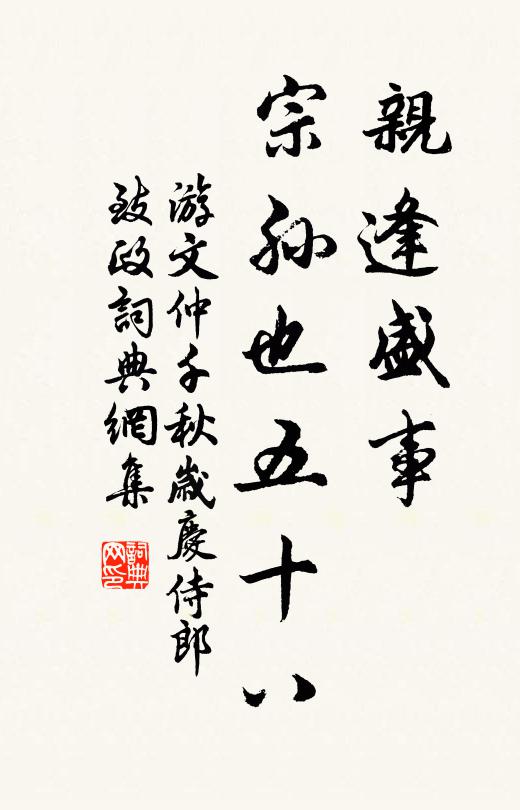 親逢盛事
宗孫也五十八
游文仲千秋歲慶侍郎
致政詞典網集
詞典网印